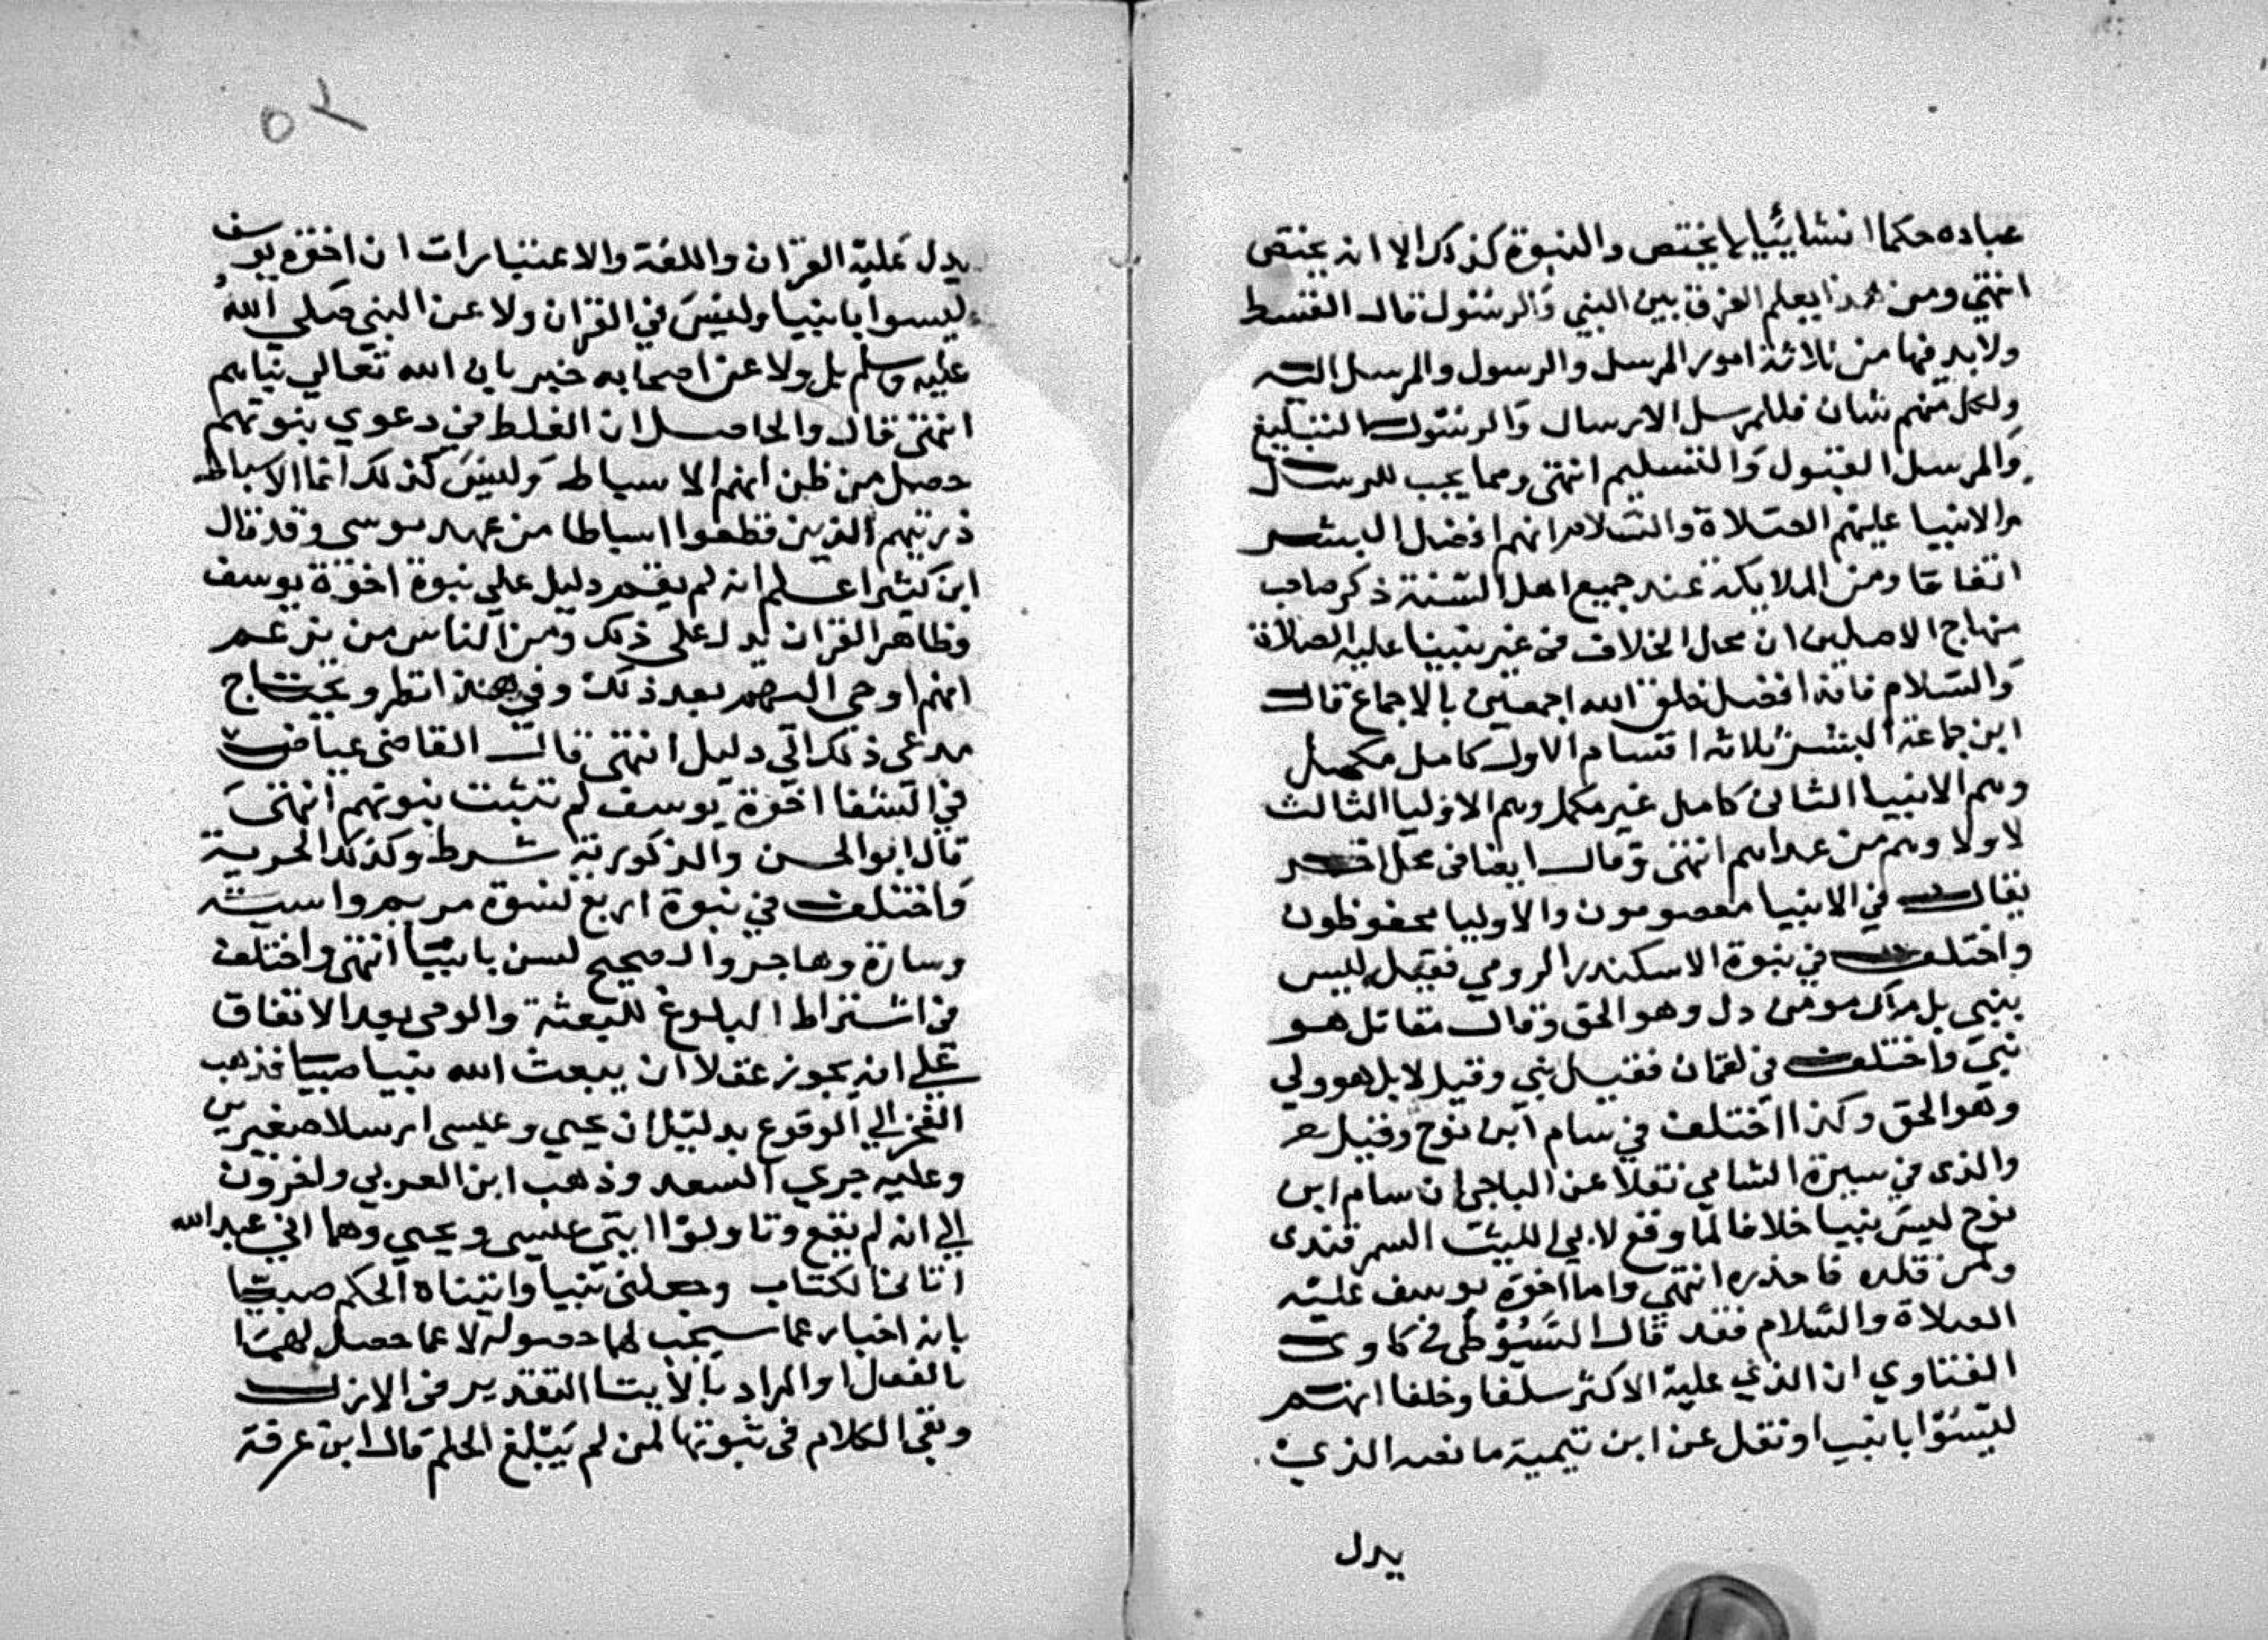 عباده حكما انشائيا لا يختص والنبوة كذلك الا انه يختص
انتهى ومن هذا يعلم الفرق بين النبي والرسول قال القسط
ولا بد فيها من ثلاثة امور المرسل والرسول والمرسل اليه
ولكل منهم شان فللمرسل الارسال وللرسول التبليغ
والمرسل القبول والتسليم انتهى ومما يجب للرسل
والانبيا عليهم الصلاة والسلام انهم افضل البشر
اتفاقا ومن الملايكة عند جميع اهل السنة ذكر صاحب
منهاج الاصلين ان محل الخلاف في غير نبينا عليه الصلاة
والسلام فانه افضل خلق الله اجمعين بالاجماع قال
ابن جماعة البشر ثلاثه اقسام الاول كامل مكمل
وهم الانبيا الثاني كامل غير مكمل وهم الاوليا الثالث
لا ولا وهم من عداهم انتهى وقال ايضا في محل اخر
يقال في الانبيا معصومون والاوليا محفوظون
واختلف في نبوة الاسكندر الرومي فقيل ليس
بنبي بل مومن وهو الحق وقال مقاتل هو
نبي واختلف في لقمان فقيل نبي وقيل لا بل هو ولي
وهو الحق وكذا اختلف في سام ابن نوح وقيل
والذي في سيرة الشامي نقلا عن الباجي ان سام ابن
نوح ليس بنبيا خلافا لما وقع لابي الليث السمرقندي
ومن قلده فاحذره انتهى واما اخوة يوسف عليه
الصلاة والسلام فقد قال السيوطي في كاوي
الفتاوي ان الذي عليه الاكثر سلفا وخلفا انهم
ليسوا بانبيا ونقل عن ابن تيمية ما نصه الذي
يدل
٥٢
يدل عليه القران واللغة والاعتبارات ان اخوة يوسف
ليسوا بانبيا وليس في القران ولا عن النبي صلي الله
عليه وسلم بل ولا عن اصحابه خبر بان الله تعالي نباهم
انتهى قال والحاصل ان الغلط في دعوي نبوتهم
حصل من ظن انهم الاسباط وليس كذلك انما الاسباط
ذريتهم الذين قطعوا اسباطا من عهد موسى وقد قال
ابن كثير اعلم انه لم يقم دليل علي نبوة اخوة يوسف
وظاهر القران يدل على ذلك ومن الناس من يزعم
انهم اوحي اليهم بعد ذلك وفي هذا نظر ويحتاج
مدعي ذلك الي دليل انتهى قال القاضي عياض
في الشفا اخوة يوسف لم تثبت نبوتهم انتهى
قال ابو الحسن والذكورية شرط وكذلك الحرية
واختلف في نبوة اربع نسوة مريم واسية
وسارة وهاجر والصحيح لسن بانبيا انتهى واختلف
في اشتراط البلوغ للبعثة والوحي بعد الاتفاق
علي انه يجوز عقلا ان يبعث الله نبيا صبيا فذهب
الفخر الي الوقوع بدليل ان يحيي وعيسى ارسلا صغيرين
وعليه جري السعد وذهب ابن العربي واخرون
الي انه لم يقع وتاولوا ايتي عيسي ويحيي وهما اني عبد الله
اتاني الكتاب وجعلني نبيا واتيناه الحكم صبيا
بانه اخبار عما سيجب لهما حصوله لا عما حصل لهما
بالفعل والمراد بالايتا التقدير في الازل
وبقي الكلام في ثبوتها لمن لم يبلغ الحلم قال ابن عرفة